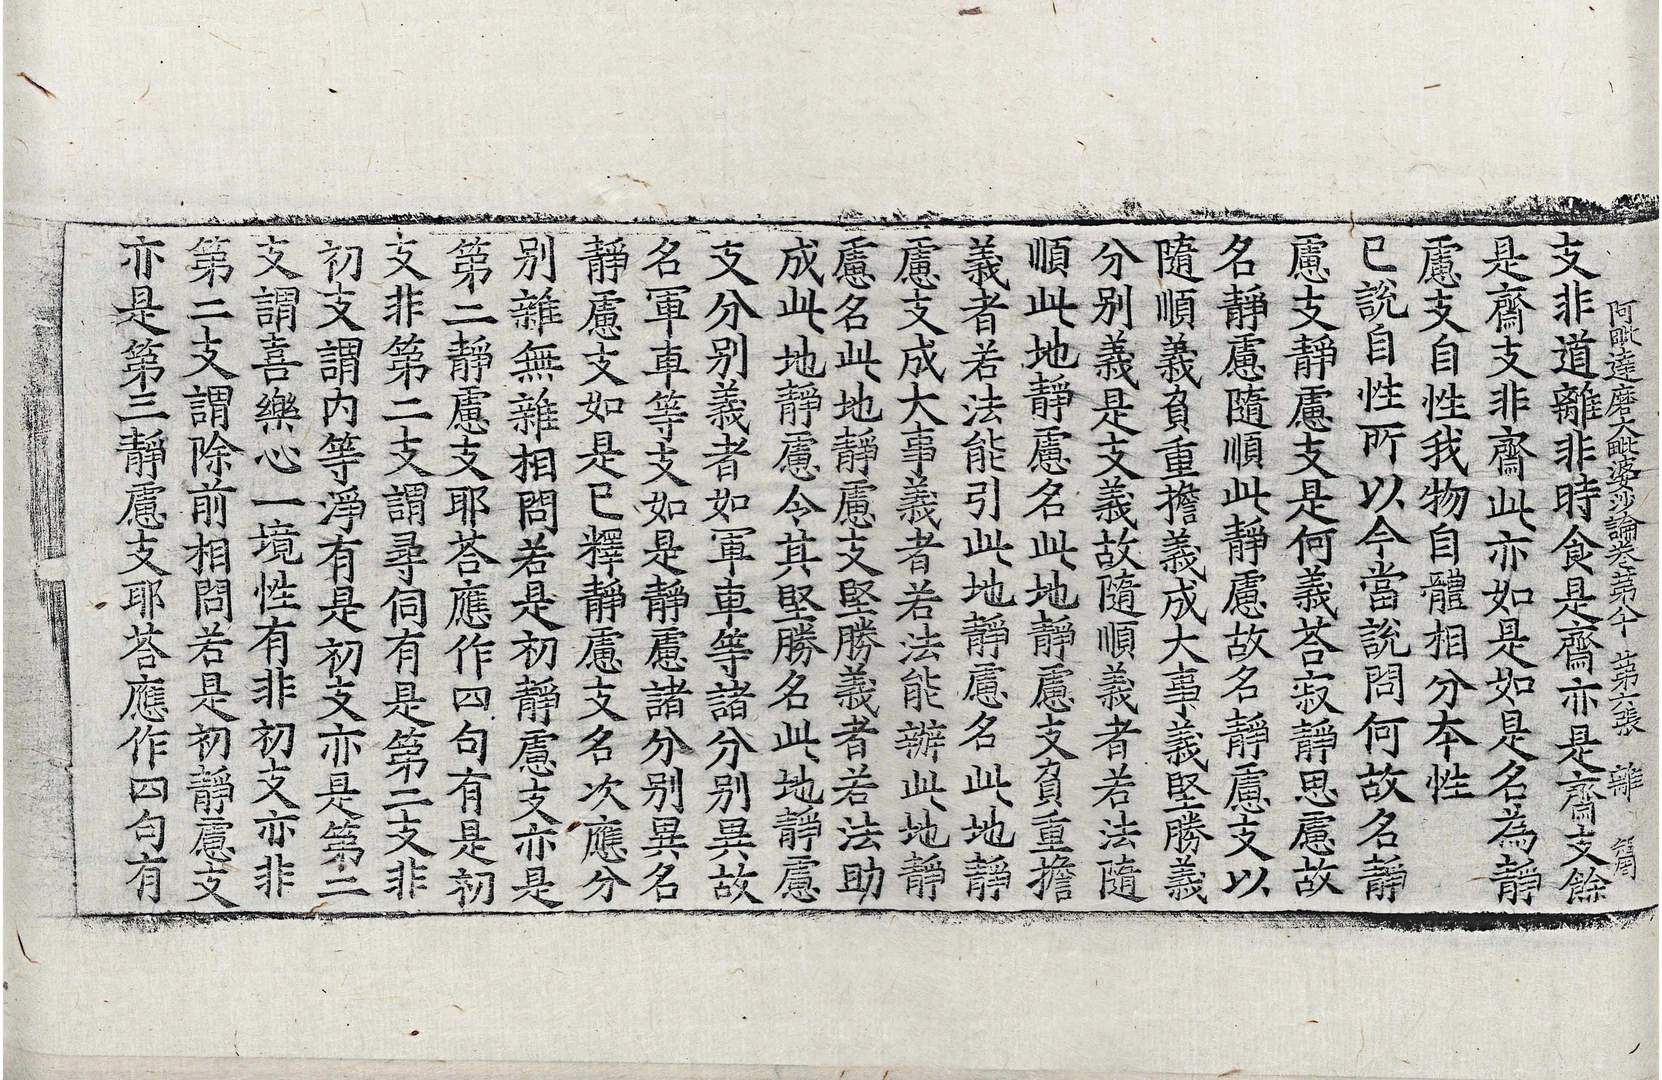 阿毗達磨大毗婆沙論卷第八十 第六張 離
支非道離非時食是齋亦是齋支餘
是齋支非齋此亦如是如是名為靜
慮支自性我物自體相分本性
已說自性所以今當說問何故名靜
慮支靜慮支是何義荅寂靜思慮故
名靜慮隨順此靜慮故名靜慮支以
隨順義負重擔義成大事義堅勝義
分別義是支義故隨順義者若法隨
順此地靜慮名此地靜慮支負重擔
義者若法能引此地靜慮名此地靜
慮支成大事義者若法能辦此地靜
慮名此地靜慮支堅勝義者若法助
成此地靜慮令其堅勝名此地靜慮
支分別義者如軍車等諸分別異故
名軍車等支如是靜慮諸分別異名
靜慮支如是已釋靜慮支名次應分
別雜無雜相問若是初靜慮支亦是
第二靜慮支耶荅應作四句有是初
支非第二支謂尋伺有是第二支非
初支謂內等淨有是初支亦是第二
支謂喜樂心一境性有非初支亦非
第二支謂除前相問若是初靜慮支
亦是第三靜慮支耶荅應作四句有